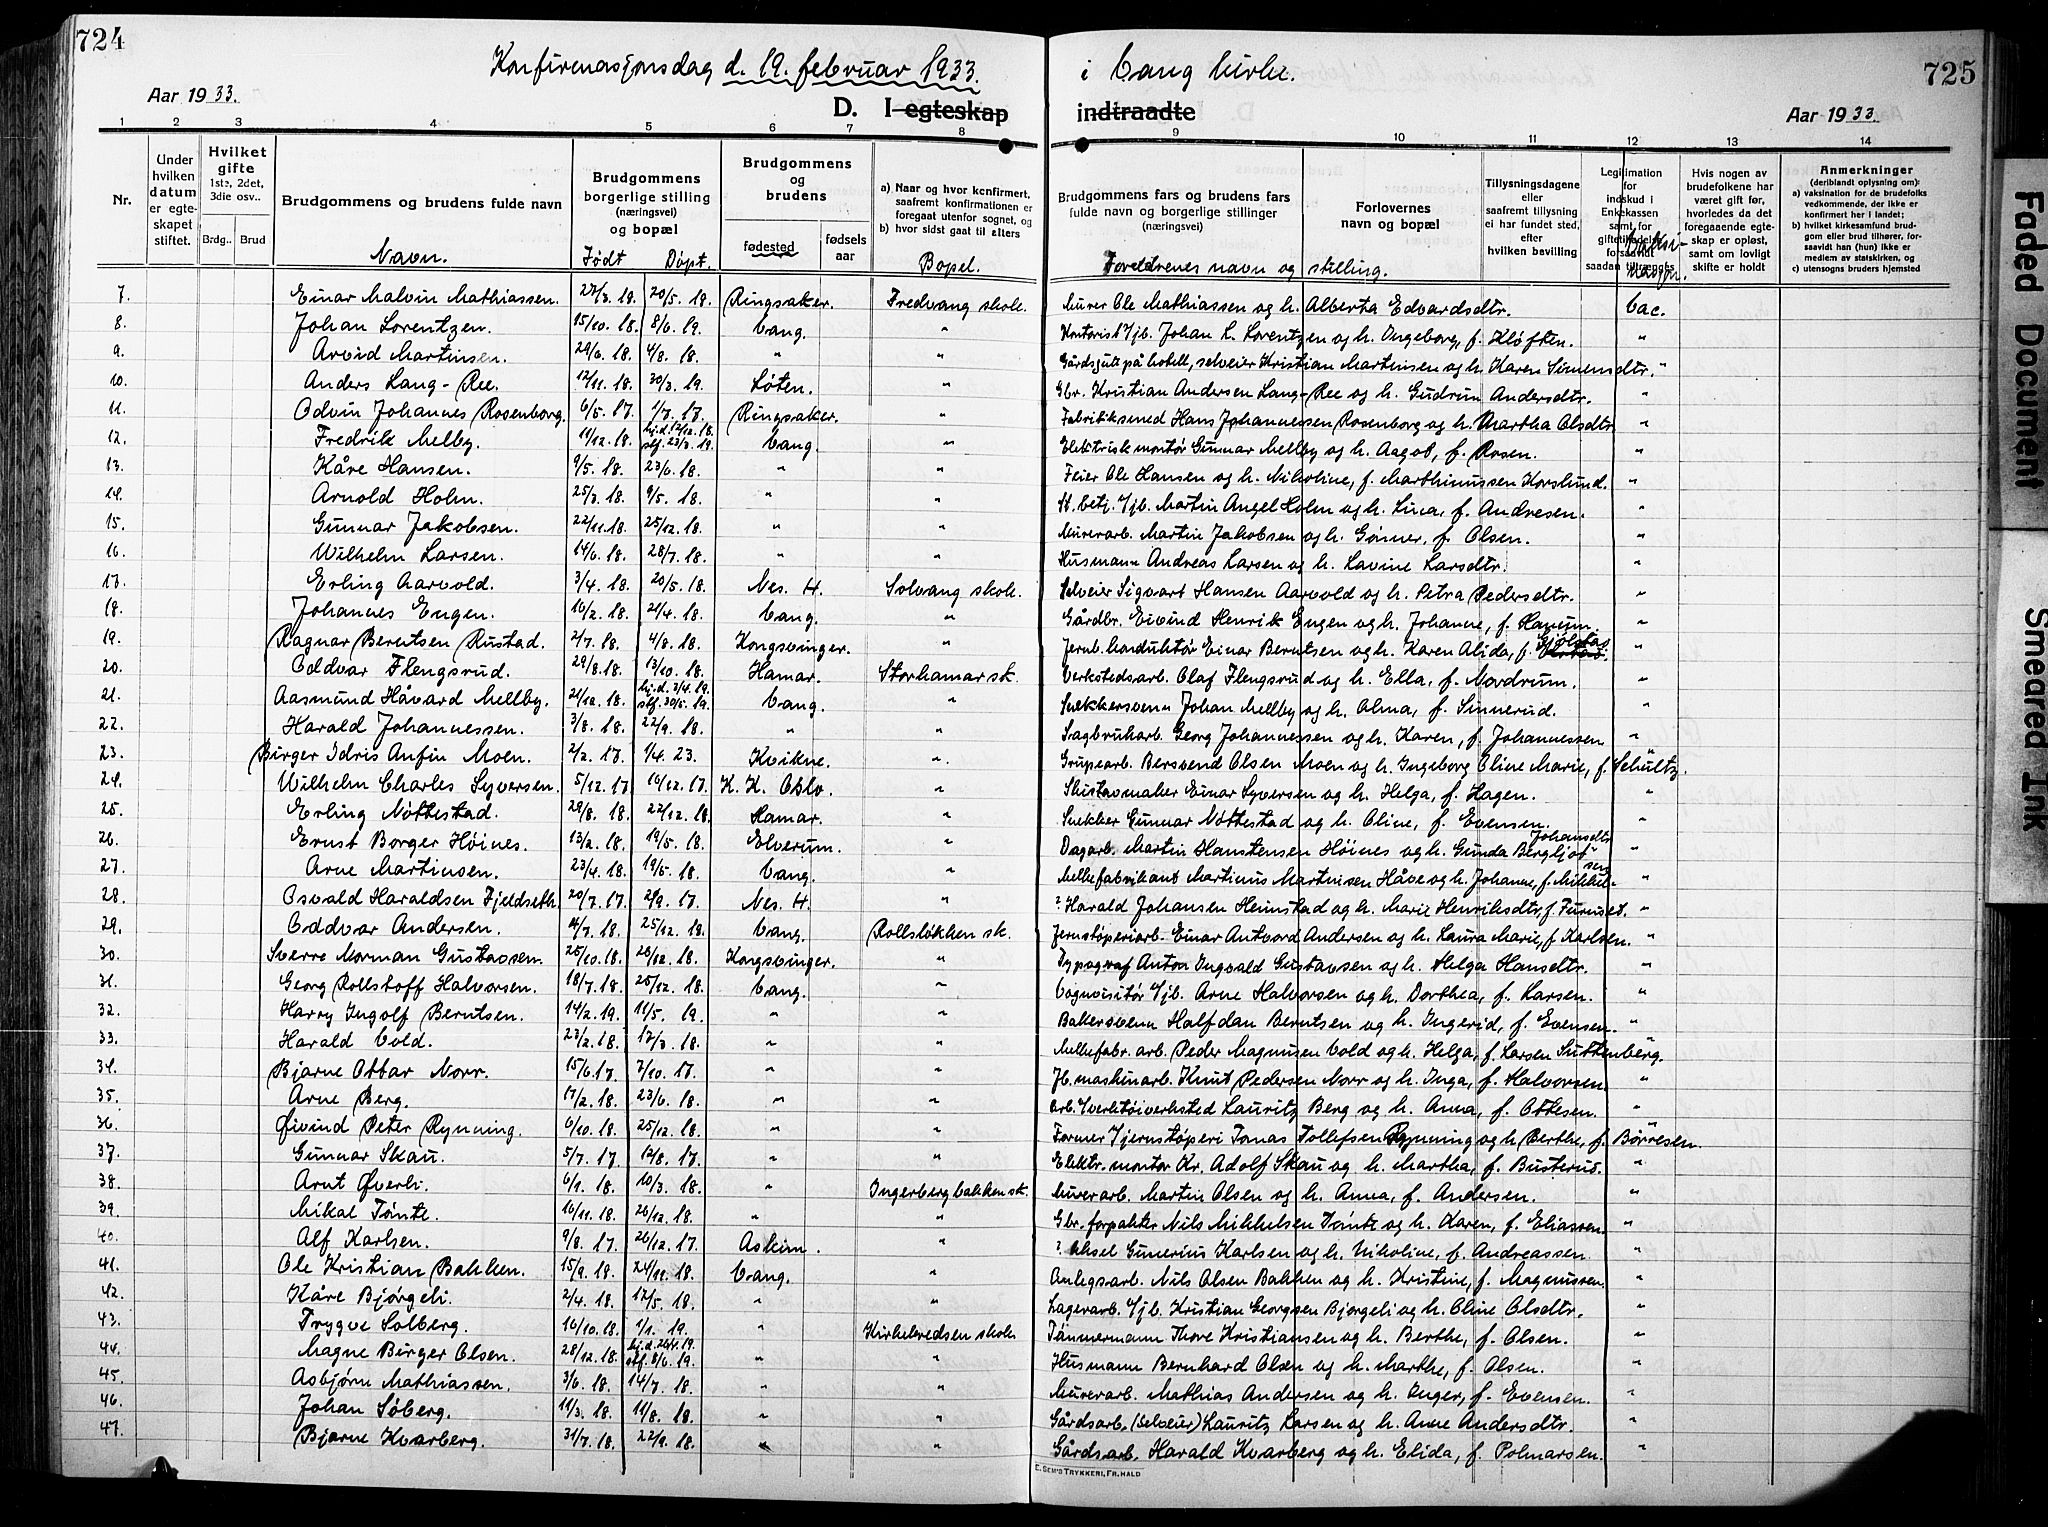 724
725
Konfirmasjonsdag d. 19. februar 1933. i Vang kirke.
Aar 1933.
D. I egteskap indtraadte
Aar 1933.
1 2 3 4 5 6 7 8 9 10 11 12 13 14
Nr.
Under hvilken datum er egteskapet stiftet.
Hvilket gifte 1ste, 2det, 3die osv..
Brdg.. Brud
Brudgommens og brudens fulde navn
Navn.
Brudgommens borgerlige stilling (næringsvei) og bopæl
Født Døpt.
Brudgommens og brudens
fødested
fødselsaar
a) Naar og hvor konfirmert, saafremt konfirmationen er foregaat utenfor sognet, og
b) hvor sidst gaat til alters
Bopel.
Brudgommens fars og brudens fars fulde navn og borgerlige stillinger (næringsvei)
Foreldrenes navn og stilling.
Forlovernes navn og bopæl
Tillysningsdagene eller saafremt tillysning ei har fundet sted, efter hvilken bevilling
Legitimation for indskud i Enkekassen samt for giftetilladelse forsaavidt saadan tiltrænges
Hvis nogen av brudefolkene har været gift før, hvorledes da det foregaaende egteskap er opløst, samt om lovligt skifte er holdt
Anmerkninger (deriblandt oplysning om):
a) vaksination for de brudefolks vedkommende, der ikke er konfirmert her i landet;
b) hvilket kirkesamfund brudgom eller brud tilhører, forsaavidt han (hun) ikke er medlem av statskirken, og
c) utensogns bruders hjemsted
7. Einar Malvin Mathiassen. 27/3. 18. 20/5. 18. Ringsaker. Fredvang skole. Murer Ole Mathiassen og h. Alberta Edvardsdtr. Vac.
8. Johan Lorentzen. 15/10. 18. 8/6. 19. Vang. " Kontorist v/jb. Johan L. Lorentzen og h. Ingeborg, f. Kløften. "
9. Arvid Martinsen. 29/6. 18. 4/8. 18. " " Gårdsgutt på hotell, selveier Kristian Martinsen og h. Karen Simensdtr. "
10. Anders Lang-Ree. 12/11. 18. 30/3. 19. Løten. " Gbr. Kristian Andersen Lang-Ree og h. Gudrun Andersdtr. "
11. Odvin Johannes Rosenborg. 6/5. 17. 1/7. 17. Ringsaker. " Fabriksmed Hans Johannessen Rosenborg og h. Martha Olsdtr. "
12. Fredrik Melby. 11/12. 18. hj.d. 12/12. 18. stf. 23/3. 19. Vang. " Elektrisk montør Gunnar Melby og h. Aagot, f. Rosen. "
13. Kåre Hansen. 9/5. 18. 23/6. 18. " " Feier Ole Hansen og h. Nikoline, f. Marthinussen Korslund. "
14. Arnold Holm. 25/3. 18. 9/5. 18. " " St. betj. v/jb. Martin Angel Holm og h. Lina, f. Andresen. "
15. Gunnar Jakobsen. 22/11. 18. 25/12. 18. " " Murerarb. Martin Jakobsen og h. Gønner, f. Olsen. "
16. Wilhelm Larsen. 14/6. 18. 28/7. 18. " " Husmann Andreas Larsen og h. Lavine Larsdtr. "
17. Erling Aarvold. 3/4. 18. 20/5. 18. Nes. H. Solvang skole. Selveier Sigvart Hansen Aarvold og h. Petra Pedersdtr. "
18. Johannes Engen. 16/2. 18. 21/4. 18. Vang. " Gårdbr. Eivind Henrik Engen og h. Johanne, f. "
19. Ragnar Berntsen Rustad. 2/7. 18. 4/8. 18. Kongsvinger. " Jernb.konduktør Einar Berntsen og h. Karen Alida, f. Gjølstad. "
20. Oddvar Flengsrud. 29/8. 18. 13/10. 18. Hamar. Storhamar sk. Verkstedsarb. Olaf Flengsrud og h. Ella, f. Nordrum. "
21. Aasmund Håvard Mellby. 21/12. 18. hj.d. 2/4. 19. stf. 30/5. 19. Vang. " Snekkersvenn Johan Mellby og h. Alma, f. Sinnerud. "
22. Harald Johannessen. 3/8. 18. 22/9. 18. " " Sagbrukarb. Georg Johannessen og h. Karen, f. Johannessen. "
23. Birger Idris Anfin Moen. 2/2. 17. 1/4. 23. Kvikne. " Grupearb. Bersvend Olsen Moen og h. Ingeborg Oline Marie, f. Schultz. "
24. Wilhelm Charles Syversen. 5/12. 17. 16/12. 17. K. K. Oslo. " Skistavmaker Einar Syversen og h. Helga, f. Hagen. "
25. Erling Nøttestad. 29/8. 18. 22/12. 18. Hamar. " Snekker Gunnar Nøttestad og h. Oline, f. Evensen. "
26. Ernst Borger Høines. 13/2. 18. 19/5. 18. Elverum. " Dagarb. Martin Hanstensen Høines og h. Gunda Bergljot Johansdtr. "
27. Arne Martinsen. 23/4. 18. 19/5. 18. Vang. " Melkefabrikant Martinus Martinsen Håve og h. Johanne, f. Mikkelsen. "
28. Osvald Haraldsen Fjeldseth. 20/7. 17. 2/9. 17. Nes. H. " ? Harald Johansen Heimstad og h. Marie Henriksdtr, f. Furuset. "
29. Oddvar Andersen. 14/7. 18. 25/12. 18. Vang. Rollsløkken sk. Jernstøperiarb. Einar Antvord Andersen og h. Laura Marie, f. Karlsen. "
30. Sverre Norman Gustavsen. 25/10. 18. 26/12. 18. Kongsvinger. " Typograf Anton Ingvald Gustavsen og h. Helga Hansdtr. "
31. Georg Rollstoff Halvorsen. 18/7. 18. 25/12. 18. Vang. " Vognvisitør v/jb. Arne Halvorsen og h. Dorthea, f. Larsen. "
32. Harry Ingolf Berntsen. 14/2. 19. 11/5. 19. " " Bakersvenn Halfdan Berntsen og h. Ingerid, f. Evensen. "
33. Harald Vold. 23/2. 18. 17/3. 18. " " Melkefabr. arb. Peder Magnusen Vold og h. Helga, f. Larsen Suttenberg. "
34. Bjarne Ottar Norr. 15/6. 17. 7/10. 17. " " Jb. maskinarb. Knut Pedersen Norr og h. Inga, f. Halvorsen. "
35. Arne Berg. 17/2. 18. 23/6. 18. " " Arb. v/verktøiverksted Lauritz Berg og h. Anna, f. Ottesen. "
36. Øivind Peter Rynning. 6/10. 18. 25/12. 18. " " Former v/jernstøperi Jonas Tollefsen Rynning og h. Berthe, f. Børresen. "
37. Gunnar Skau. 5/7. 17. 12/8. 17. " " Elektr. montør Kr. Adolf Skau og h. Martha, f. Busterud. "
38. Arnt Øverli. 6/1. 18. 10/3. 18. " Ingerbergbakken sk. Murerarb. Martin Olsen og h. Anna, f. Andersen. "
39. Mikal Tønte. 10/11. 18. 26/12. 18. " " Gbr. forpakter Nils Mikkelsen Tønte og h. Karen, f. Eliassen. "
40. Alf Karlsen. 9/8. 17. 26/12. 17. Askim. " ? Aksel Gunerius Karlsen og h. Nikoline, f. Andreassen. "
41. Ole Kristian Bakken. 15/9. 18. 24/11. 18. Vang. " Anlegsarb. Nils Olsen Bakken og h. Kristine, f. Magnussen. "
42. Kåre Bjørgeli. 2/4. 18. 12/5. 18. " " Lagerarb. v/jb. Kristian Georgsen Bjørgeli og h. Oline Olsdtr. "
43. Trygve Solberg. 16/10. 18. 1/1. 19. " Kirkebredsen skole Tømmermann Thore Kristiansen og h. Berthe, f. Olsen. "
44. Magne Birger Olsen. 28/12. 18. hj.d. 26/4. 19. stf. 8/6. 19. " " Husmann Bernhard Olsen og h. Marthe, f. Olsen. "
45. Asbjørn Mathiassen. 3/6. 18. 14/7. 18. " " Murerarb. Mathias Andersen og h. Inger, f. Evensen. "
46. Johan Søberg. 11/3. 18. 11/8. 18. " " Gårdsarb. (selveier) Lauritz Larsen og h. Anne Andersdtr. "
47. Bjarne Kvarberg. 31/7. 18. 22/9. 18. " " Gårdsarb. Harald Kvarberg og h. Elida, f. Polmarsen. "
E. SEM'S TRYKKERI, FR.HALD
Faded Document
Smeared Ink